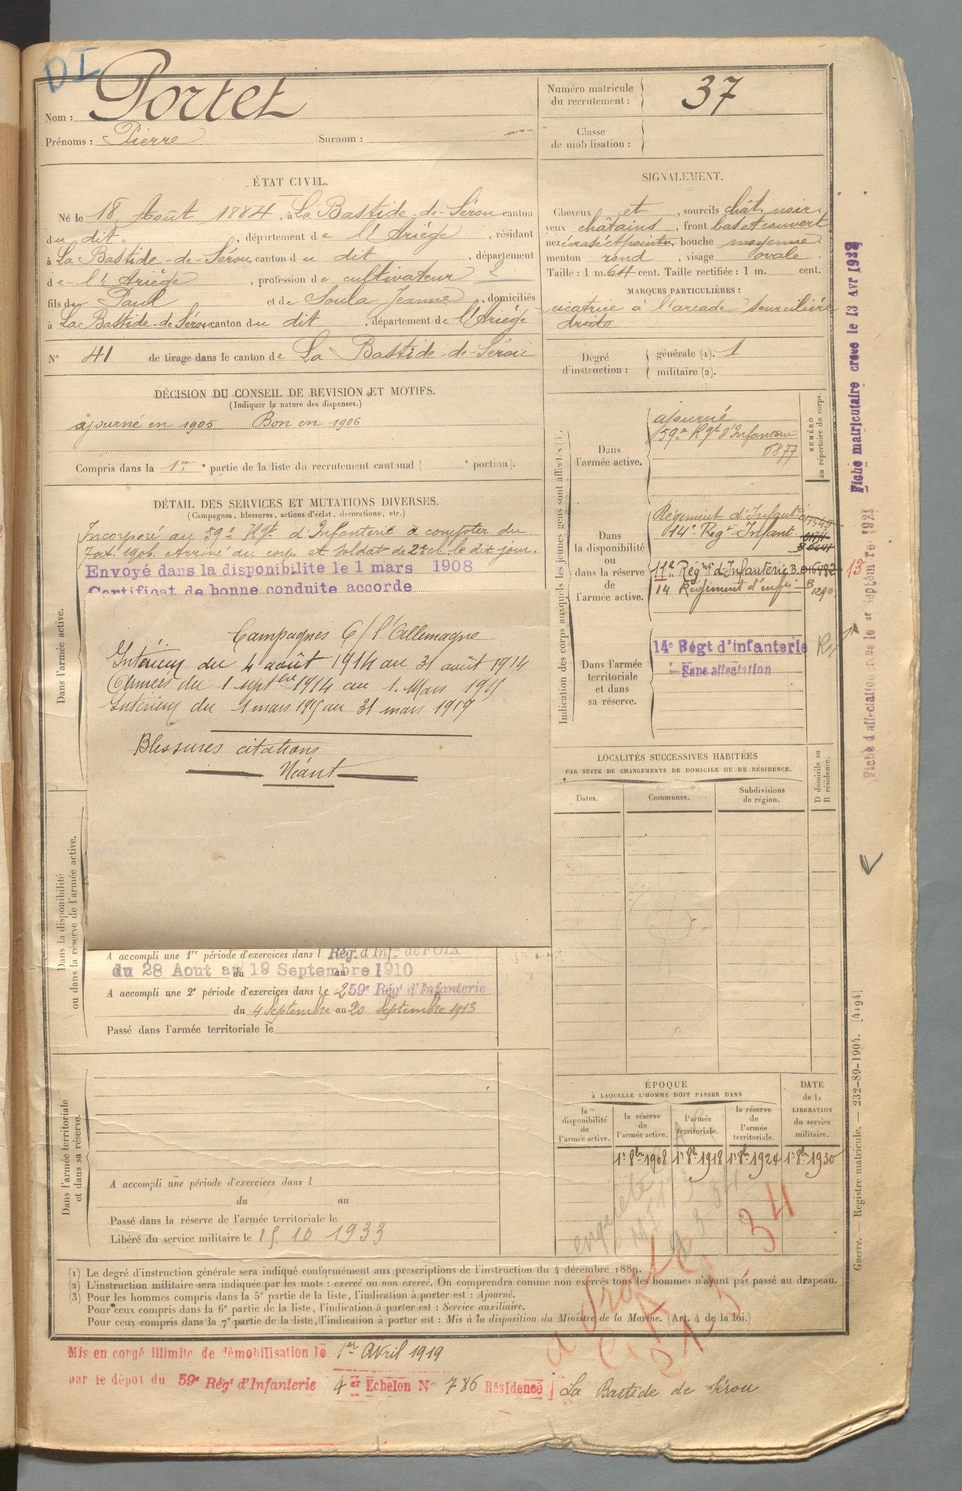 DI
Nom : Portet
Prénoms : Pierre Surnom :
Numéro matricule du recrutement : 37
Classe de mobilisation :
ÉTAT CIVIL.
Né le 18 Août 1884, à La Bastide-de-Sérou canton
du dit, département de l'Ariège, résidant
à La Bastide-de-Sérou canton du dit, département
de l'Ariège, profession de cultivateur
fils de Paul et de Soula Jeanne, domiciliés
à La Bastide-de-Sérou canton du dit, département de l'Ariège
N° 41 de tirage dans le canton de La Bastide-de-Sérou
SIGNALEMENT.
Cheveux et, sourcils chât. noir
yeux châtains, front bas et couvert
nez écrasé et pointu, bouche moyenne
menton rond, visage ovale
Taille : 1 m. 64 cent. Taille rectifiée : 1 m. cent.
MARQUES PARTICULIÈRES :
cicatrice à l'arcade sourcilière
droite
Degré d'instruction : générale (1). 1
militaire (2).
DÉCISION DU CONSEIL DE REVISION ET MOTIFS.
(Indiquer la nature des dispenses.)
ajourné en 1905 Bon en 1906
Compris dans la 1re partie de la liste du recrutement cantonal ( e portion).
DÉTAIL DES SERVICES ET MUTATIONS DIVERSES.
(Campagnes, blessures, actions d'éclat, décorations, etc.)
Incorporé au 59e Rgt d'Infanterie à compter du
7 oct. 1906. Arrivé au corps et soldat de 2e cl. le dit jour.
Envoyé dans la disponibilite le 1 mars 1908
Certificat de bonne conduite accorde
Campagnes C/ l'Allemagne
Intérieur du 4 août 1914 au 31 août 1914
Armées du 1 septbre 1914 au 1 Mars 1915
Intérieur du 1 mars 1915 au 31 mars 1917
Blessures citations
Néant
A accompli une 1re période d'exercices dans l Rég. d'Inf. de FOIX
du 28 Aout au 19 Septembre 1910
A accompli une 2e période d'exercices dans le 259e Régt d'Infanterie
du 4 Septembre au 20 Septembre 1913
Passé dans l'armée territoriale le
A accompli une période d'exercices dans l
du au
Passé dans la réserve de l'armée territoriale le
Libéré du service militaire le 15 10 1933
Dans l'armée active.
Dans la disponibilité ou dans la réserve de l'armée active.
Dans l'armée territoriale et dans sa réserve.
Indication des corps auxquels les jeunes gens sont affectés
NUMÉRO au répertoire du corps.
Dans l'armée active.
ajourné
59e Rgt d'Infanterie
6877
Dans la disponibilité ou dans la réserve de l'armée active.
Régiment d'Infant
14e Reg. Infant
11e Régt d'Infanterie
14 Régiment d'inf.
13
Dans l'armée territoriale et dans sa réserve.
14e Régt d'infanterie
Sans affectation
LOCALITÉS SUCCESSIVES HABITÉES
PAR SUITE DE CHANGEMENTS DE DOMICILE OU DE RÉSIDENCE.
D domicile ou R résidence.
Dates. Communes. Subdivisions de région.
ÉPOQUE
À LAQUELLE L'HOMME DOIT PASSER DANS
DATE de la LIBÉRATION du service militaire.
la disponibilité de l'armée active.
la réserve de l'armée active.
l'armée territoriale.
la réserve de l'armée territoriale.
1er 8bre 1908 1er 8bre 1918 1er 8bre 1924 1er 8bre 1930
(1) Le degré d'instruction générale sera indiqué conformément aux prescriptions de l'instruction du 4 décembre 1889.
(2) L'instruction militaire sera indiquée par les mots : exercé ou non exercé. On comprendra comme non exercés tous les hommes n'ayant pas passé au drapeau.
(3) Pour les hommes compris dans la 5e partie de la liste, l'indication à porter est : Ajourné.
Pour ceux compris dans la 6e partie de la liste, l'indication à porter est : Service auxiliaire.
Pour ceux compris dans la 7e partie de la liste, l'indication à porter est : Mis à la disposition du Ministre de la Marine. (Art. 4 de la loi.)
Mis en congé illimité de démobilisation le 1er Avril 1919
par le dépôt du 59e Régt d'Infanterie 4er Echelon No 786 Résidence La Bastide de Sérou
Fiche matriculaire creee le 13 Avr 192
Guerre. Registre matricule. — 232-89-1904. [4194]